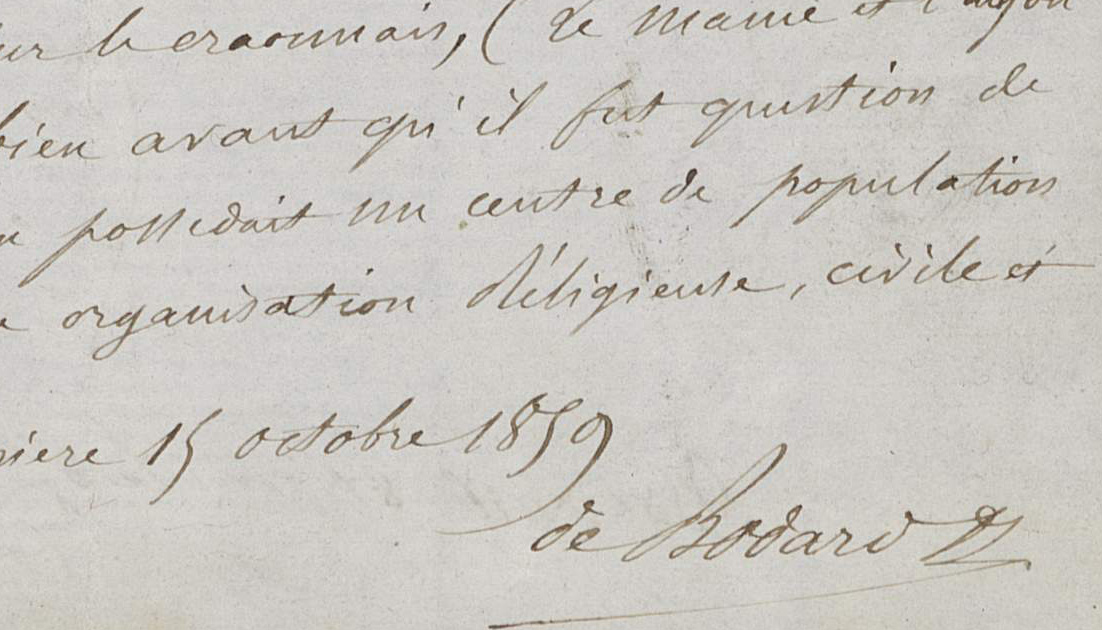 le craonnais, (de maine et
bien avant qu'il fut question de
possedait un centre de population
organisation réligieuse, civile et
15 octobre 1859
de Bodard